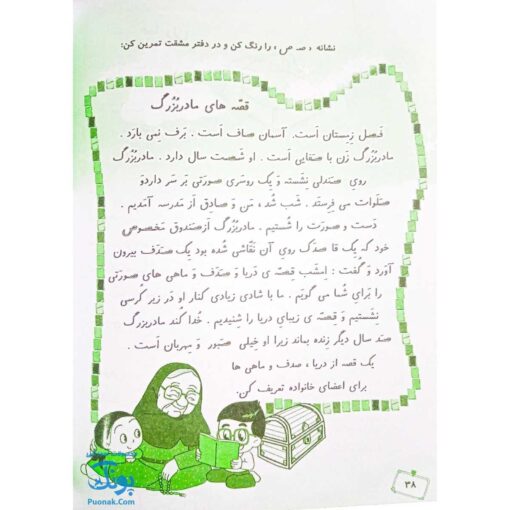 نشانه « صـ ص » را رنگ کن و در دفتر مشقت تمرین کن:
قصّه های مادربُزُرگ
فَصل زِمِستان است. آسمان صاف است . بَرف نِمی بارَد .
مادربُزُرگ زَن با صَفایی است . او شَصت سال دارد . مادربُزُرگ
رویِ صَندلی نِشَسته وَ یِک روسَریِ صورَتی بَر سَر دارد وَ
صَلَوات می فِرِستَد . شَب شُد ، مَن وَ صادِق اَز مَدرسه آمَدیم .
دَست و صورَت را شُستیم . مادربُزُرگ اَز صَندوق مَخصوصِ
خود که یِک قاصِدَک رویِ آن نَقّاشی شُده بود یِک صَدَف بیرون
آورد وَ گُفت : اِمشَب قِصّه ی دَریا وَ صَدَف وَ ماهی های صورَتی
را بَرای شُما می گویَم . ما با شادی زیادی کنار او دَر زیر کُرسی
نِشَستیم وَ قِصّه ی زیبایِ دَریا را شِنیدیم . خُدا کُند مادربزرگ
صَد سال دیگر زِنده بماند زیرا او خِیلی صَبور وَ مِهربان اَست .
یک قصه از دریا ، صدف و ماهی ها
برای اعضای خانواده تعریف کن.
۳۸
پونک
Puonak.Com